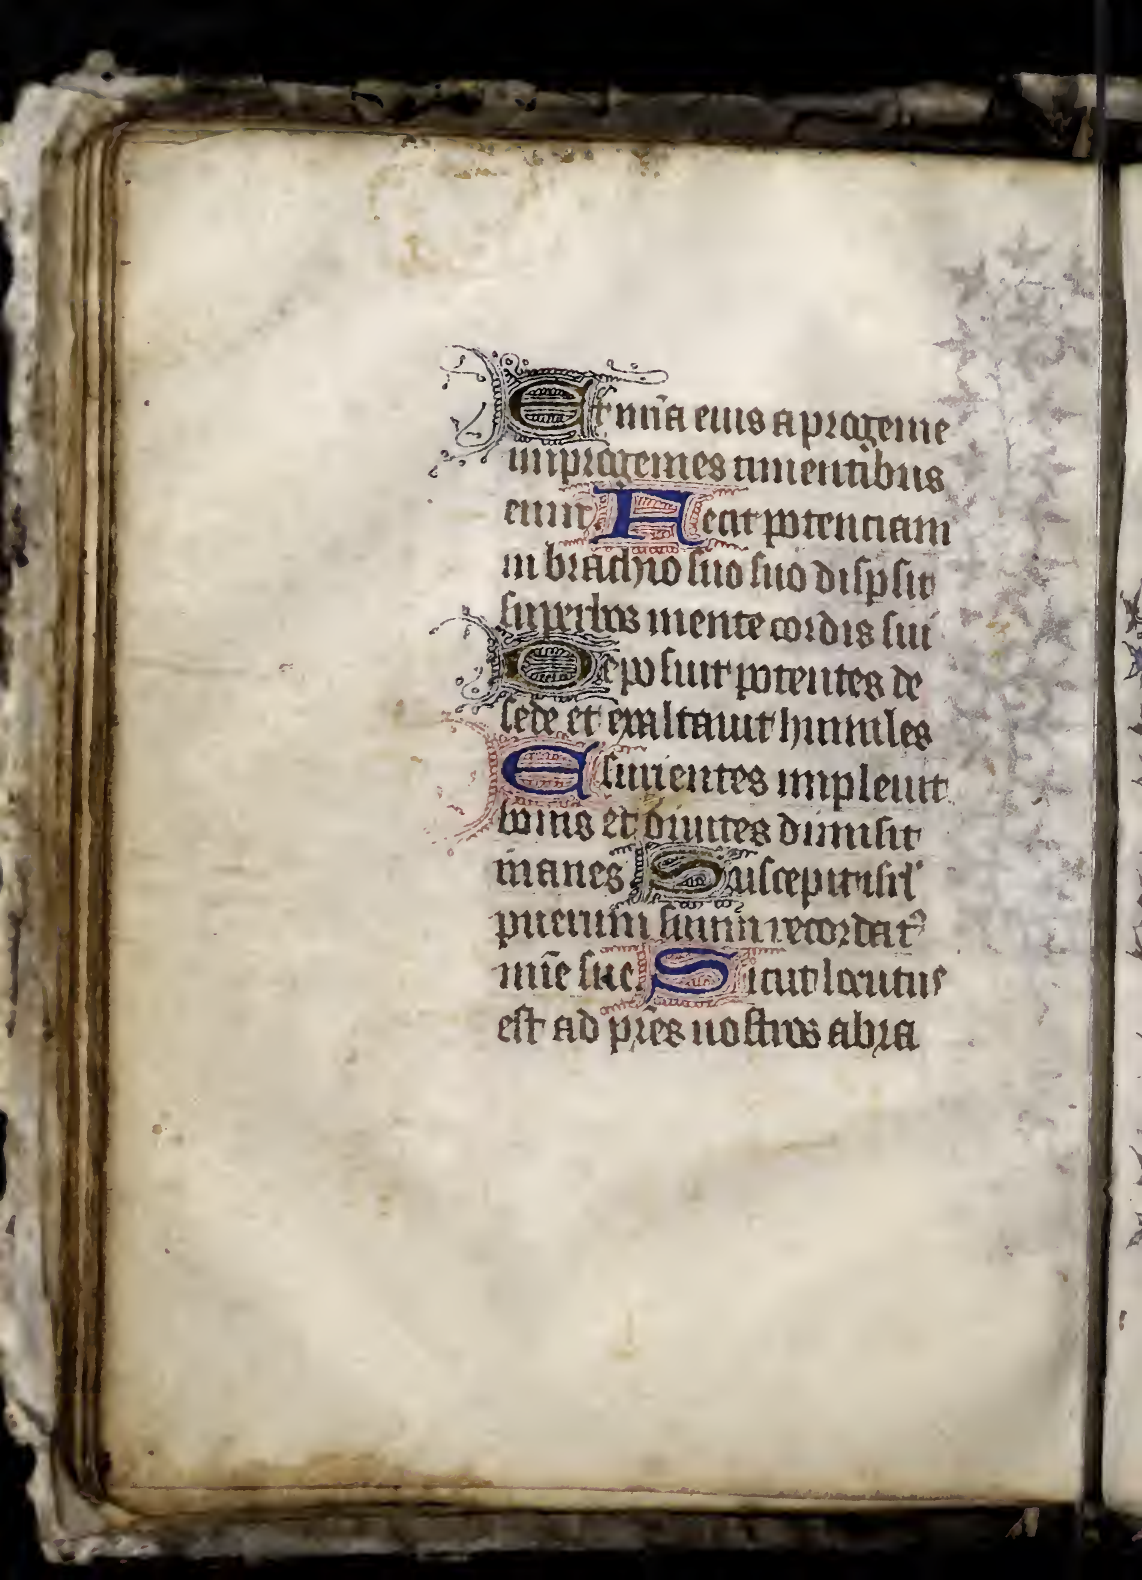 Et mīa eius a progenie
in progenies timentibus
eum. Fecit potentiam
in brachio suo suo dispsit
superbos mente cordis sui
Deposuit potentes de
sede et exaltauit humiles
Esurientes impleuit
bonis et diuites dimisit
inanes Suscepit isrl'
puerum suum recordatꝰ
mīe sue. Sicut locutus
est ad pr̄es nostros abra